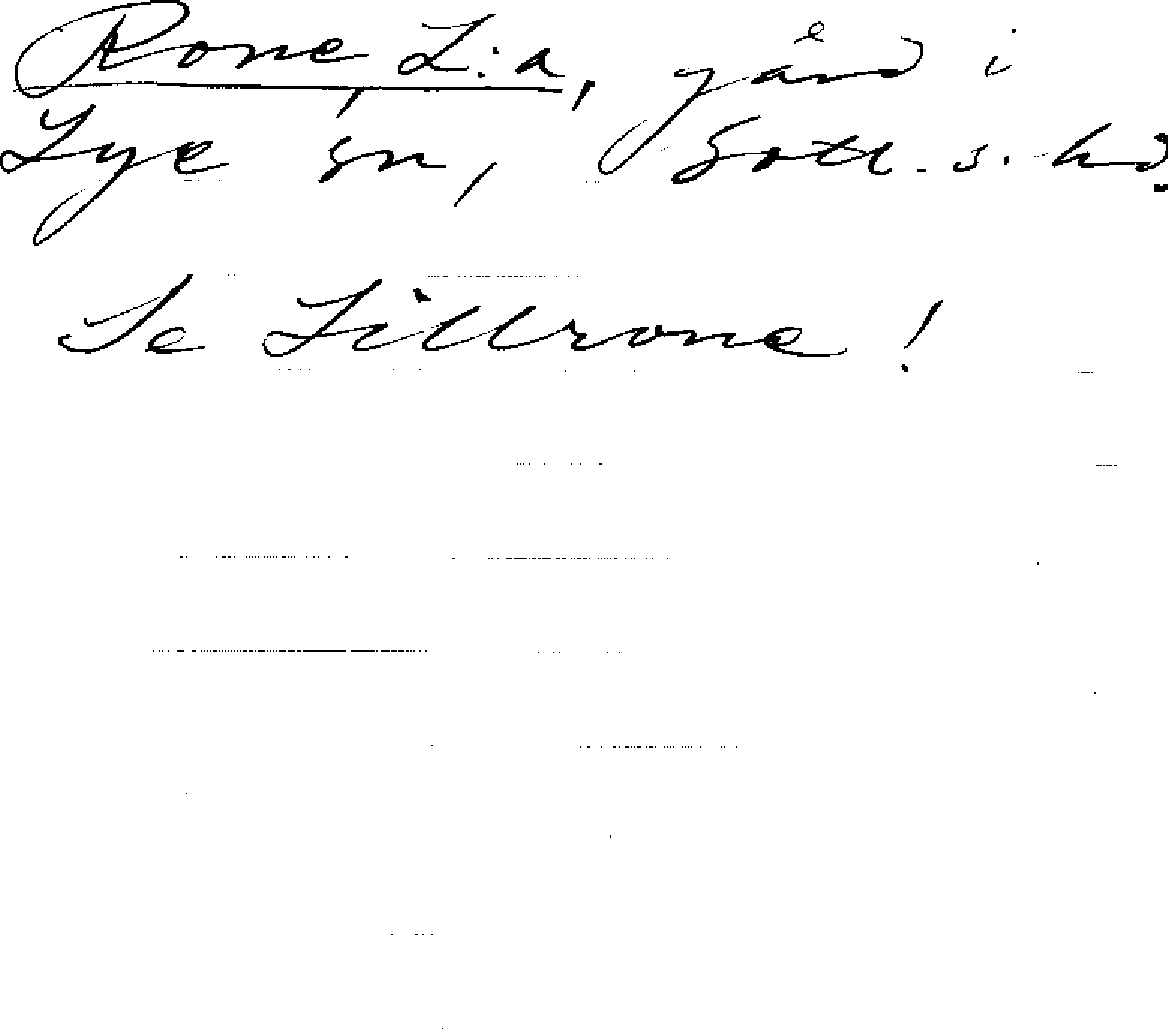 Rone, L:a, gård i
Lye sn, Gotl. s. hd.
Se Lillrone!